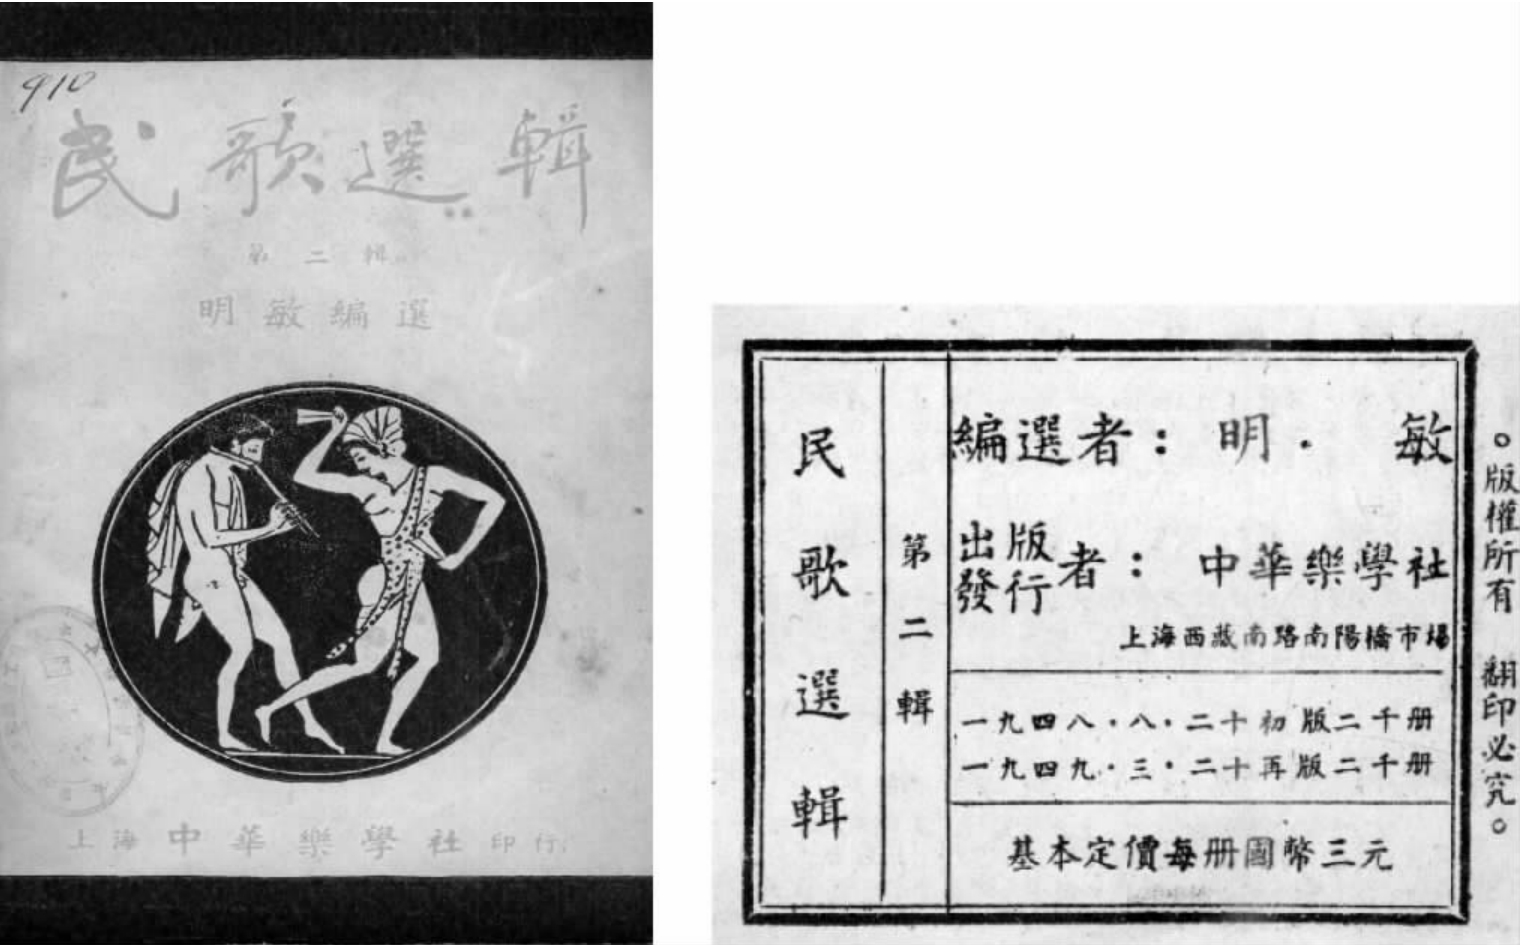 910
民歌選輯
第二輯
明敏編選
上海中華樂學社印行
民歌選輯
第二輯
編選者：明·敏
出版
發行
者：中華樂學社
上海西藏南路南陽橋市場
一九四八·八·二十初版二千册
一九四九·三·二十再版二千册
基本定價每册國幣三元
。版權所有 翻印必究。